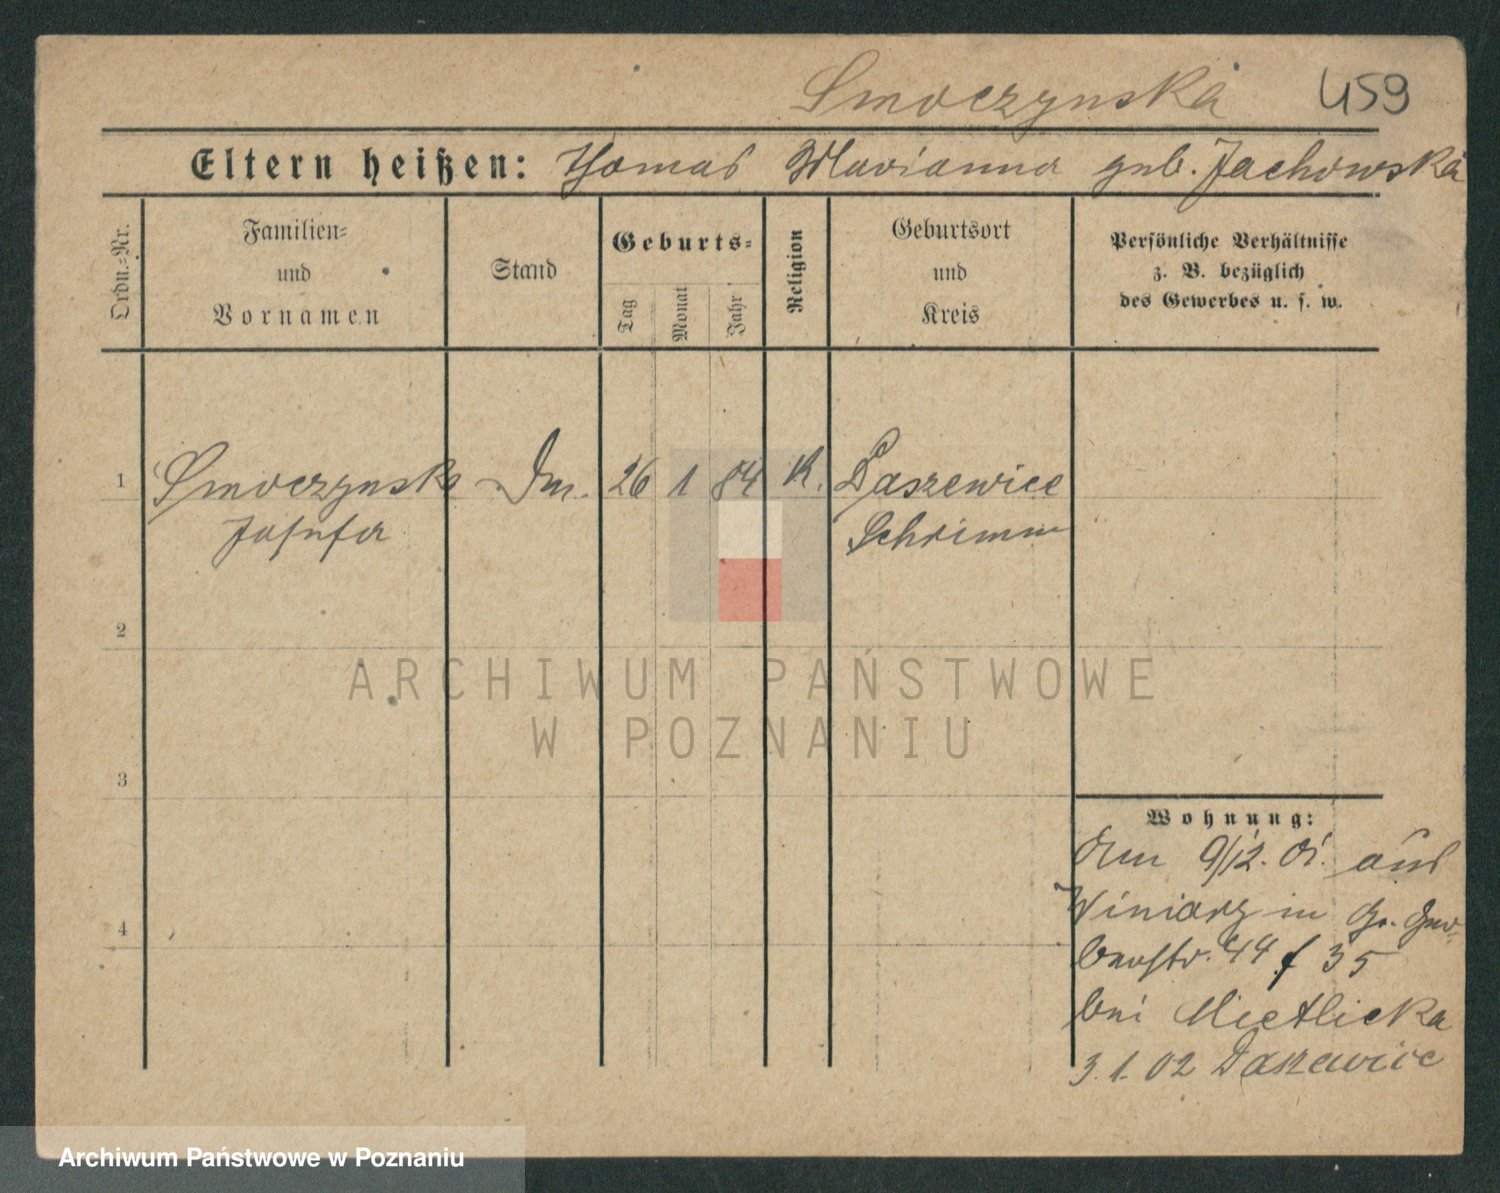 Smoczynska 459
Eltern heißen: Thomas Marianna geb. Jachowska
Ordn.-Nr.
Familien-
und
Vornamen
Stand
Geburts-
Tag
Monat
Jahr
Religion
Geburtsort
und
Kreis
Persönliche Verhältnisse
z. B. bezüglich
des Gewerbes u. s. w.
1 Smoczynska 26 1 84 K. Daszewice
Josefa Schrimm
2
ARCHIWUM PAŃSTWOWE
W POZNANIU
3
Wohnung:
9/12. 01. aus
4 Winiary in Gr. Ger-
berstr. 44 f 35
bei Mietlicka
3. 1. 02 Daszewice
Archiwum Państwowe w Poznaniu